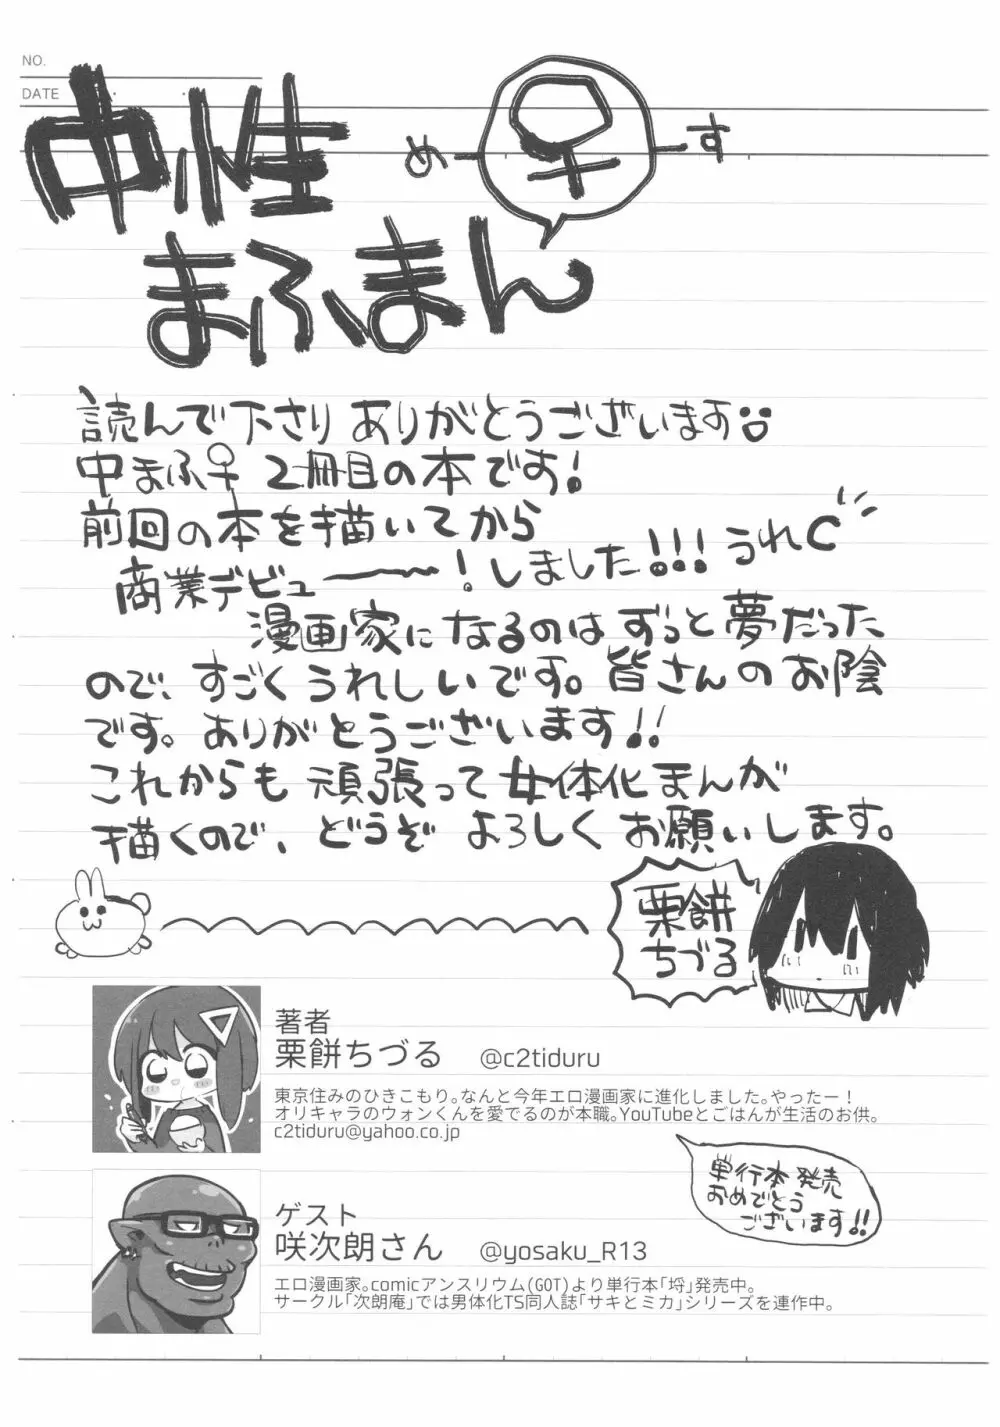 NO.
DATE
中性
め♀す
まふまん
読んで下さり ありがとうございます
中まふ♀ 2冊目の本です!
前回の本を描いてから
商業デビュー〜〜!しました!!! うれC
漫画家になるのは ずっと夢だった
ので、すごくうれしいです。皆さんのお陰
です。ありがとうございます!!
これからも 頑張って女体化まんが
描くので、どうぞ よろしく お願いします。
栗餅
ちづる
著者
栗餅ちづる @c2tiduru
東京住みのひきこもり。なんと今年エロ漫画家に進化しました。やったー!
オリキャラのウォンくんを愛でるのが本職。YouTubeとごはんが生活のお供。
c2tiduru@yahoo.co.jp
単行本 発売
おめでとう
ございます!!
ゲスト
咲次朗さん @yosaku_R13
エロ漫画家。comicアンスリウム(GOT)より単行本「埒」発売中。
サークル「次朗庵」では男体化TS同人誌「サキとミカ」シリーズを連作中。